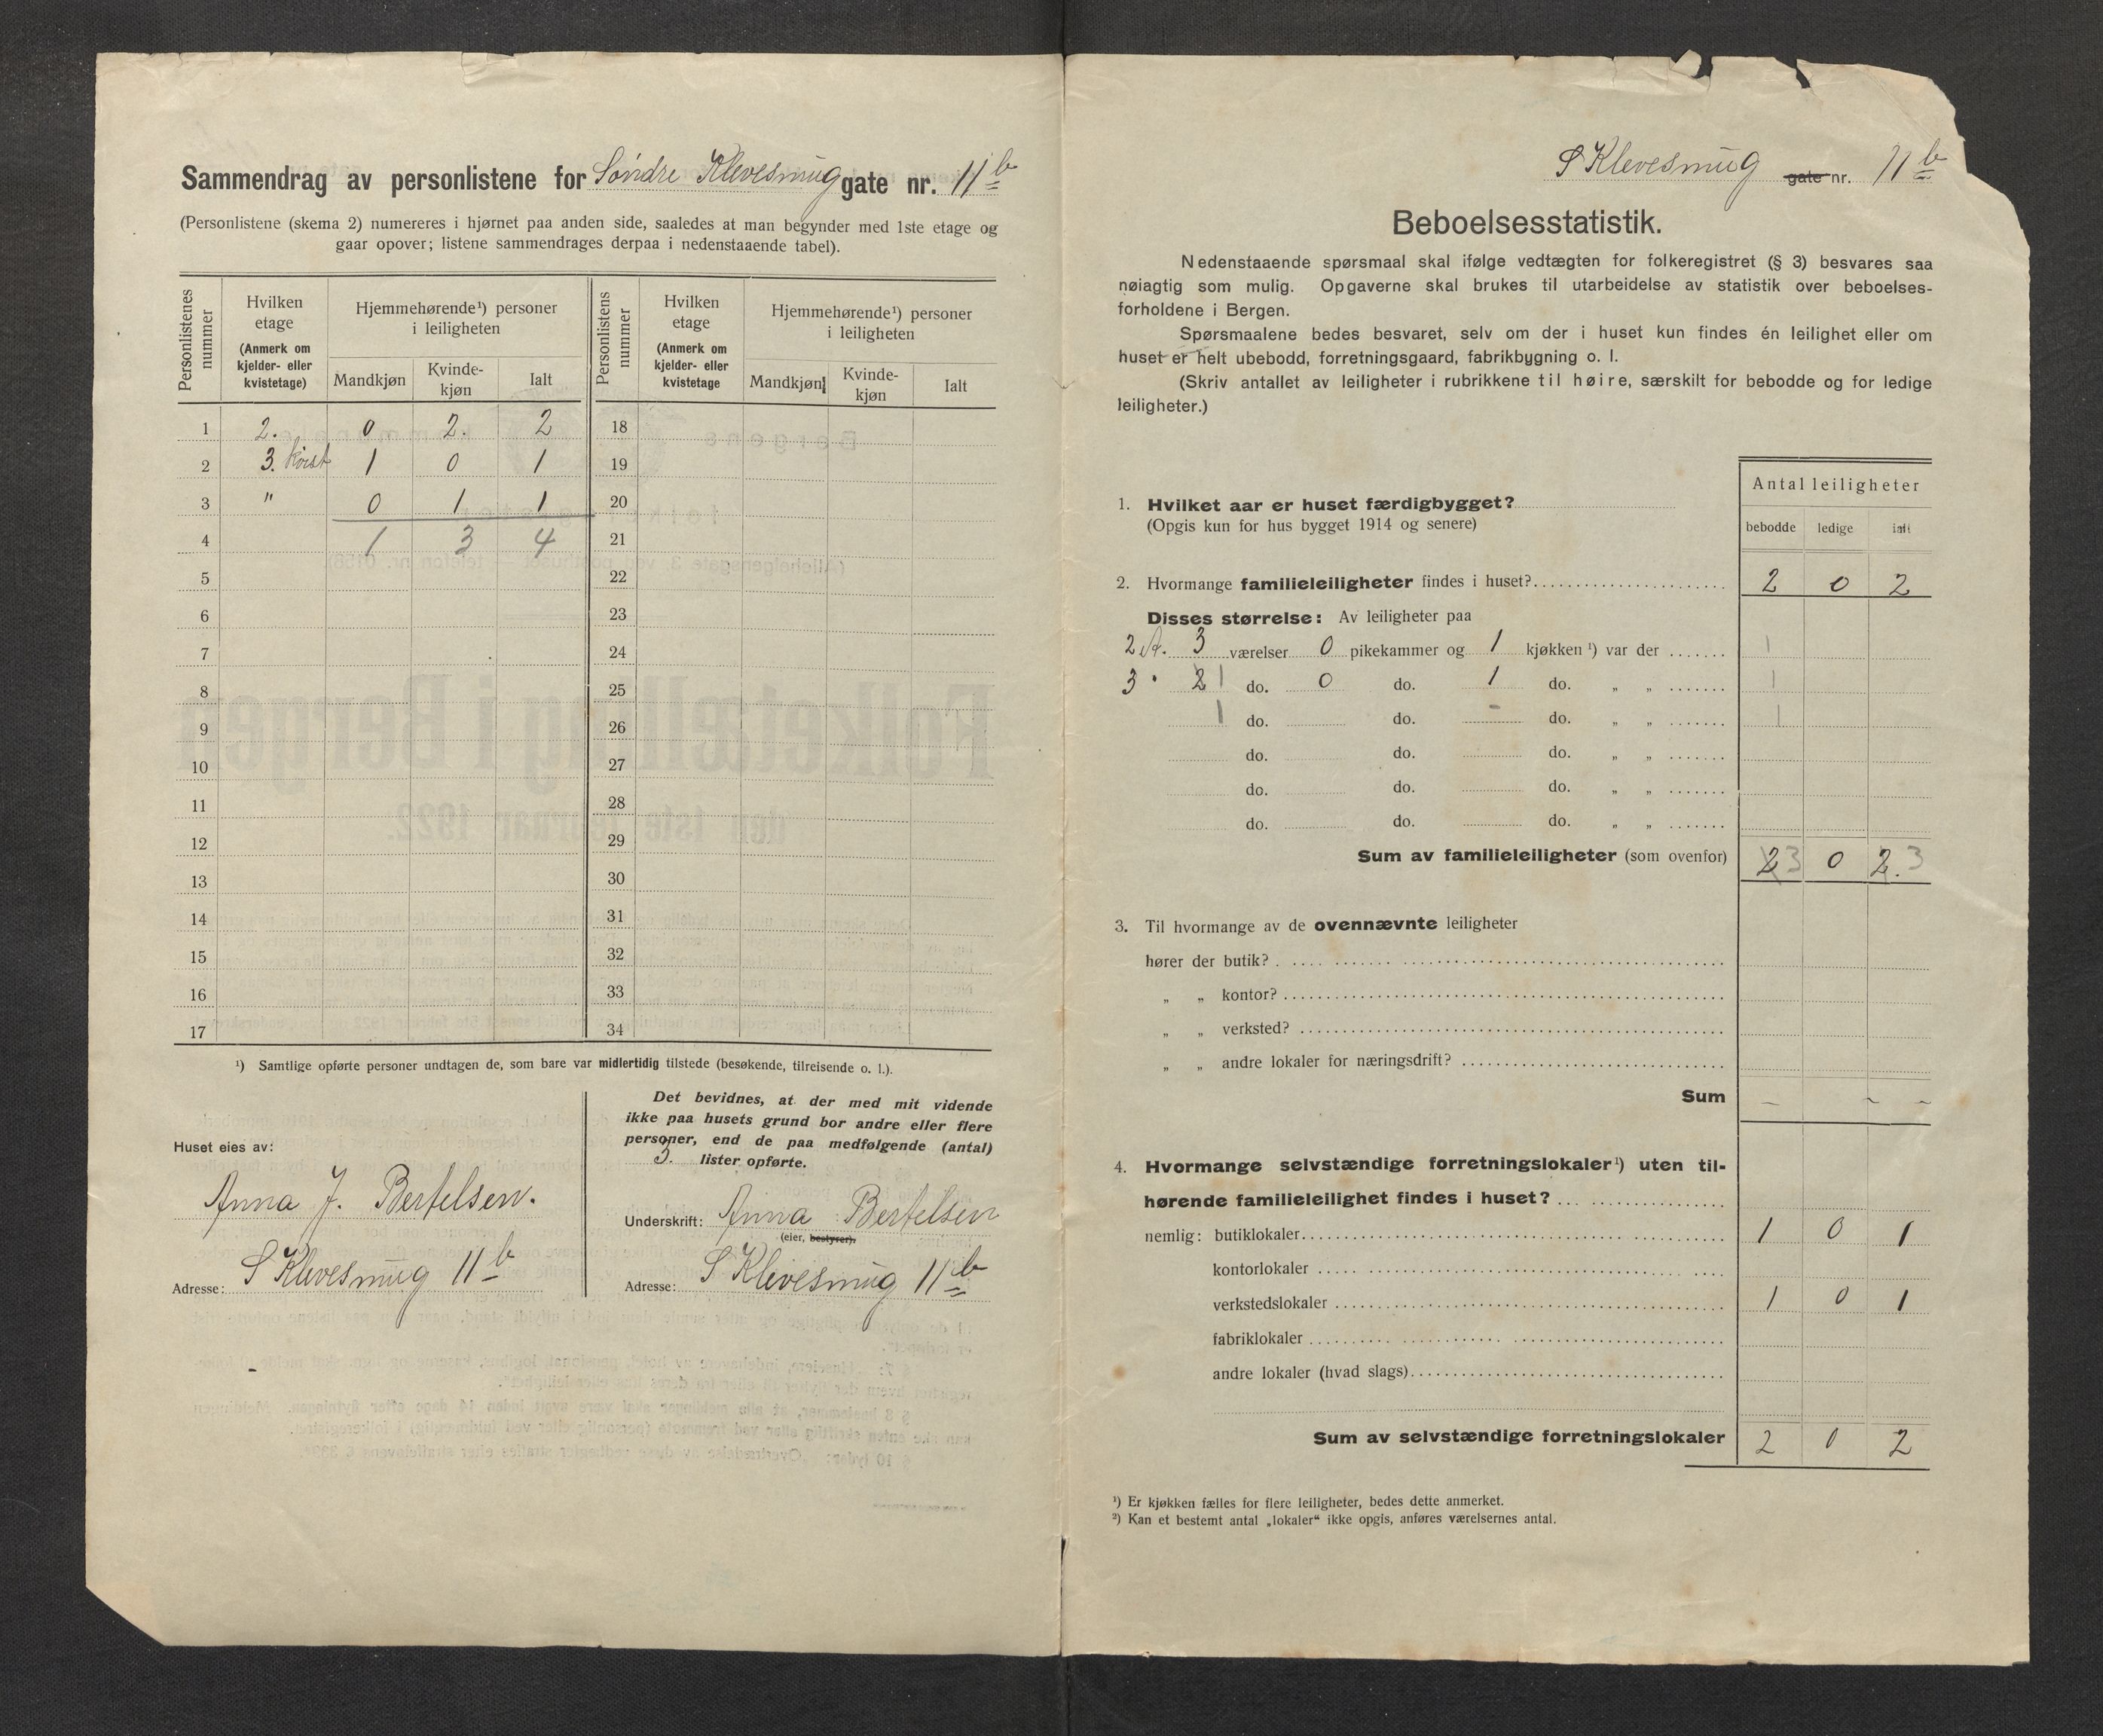 Sammendrag av personlistene for Søndre Klevesmug gate nr. 11b
(Personlistene (skema 2) numereres i hjørnet paa anden side, saaledes at man begynder med 1ste etage og
gaar opover; listene sammendrages derpaa i nedenstaaende tabel).
Personlistenes nummer
Hvilken etage (Anmerk om kjelder- eller kvistetage)
Hjemmehørende¹) personer i leiligheten
Mandkjøn Kvindekjøn Ialt
Personlistens nummer
Hvilken etage (Anmerk om kjelder- eller kvistetage
Hjemmehørende¹) personer i leiligheten
Mandkjøn Kvindekjøn Ialt
1 2. 0 2. 2 18
2 3. 1 0 1 19
3 " 0 1 1 20
4 1 3 4 21
5 22
6 23
7 24
8 25
9 26
10 27
11 28
12 29
13 30
14 31
15 32
16 33
17 34
¹) Samtlige opførte personer undtagen de, som bare var midlertidig tilstede (besøkende, tilreisende o. l.).
Huset eies av:
Anna J. Bertelsen.
Adresse: S Klevesmug 11b
Det bevidnes, at der med mit vidende
ikke paa husets grund bor andre eller flere
personer, end de paa medfølgende (antal)
3. lister opførte.
Underskrift: Anna Bertelsen
(eier, bestyrer).
Adresse: S Klevesmug 11b
S Klevesmug gate nr. 11b
Beboelsesstatistik.
Nedenstaaende spørsmaal skal ifølge vedtægten for folkeregistret (§ 3) besvares saa
nøiagtig som mulig. Opgaverne skal brukes til utarbeidelse av statistik over beboelses-
forholdene i Bergen.
Spørsmaalene bedes besvaret, selv om der i huset kun findes én leilighet eller om
huset er helt ubebodd, forretningsgaard, fabrikbygning o. l.
(Skriv antallet av leiligheter i rubrikkene til høire, særskilt for bebodde og for ledige
leiligheter.)
Antal leiligheter
bebodde ledige ialt
1. Hvilket aar er huset færdigbygget?
(Opgis kun for hus bygget 1914 og senere)
2. Hvormange familieleiligheter findes i huset? 2 0 2
Disses størrelse: Av leiligheter paa
3 værelser 0 pikekammer og 1 kjøkken ¹) var der 1
3 " 2 1 do. 0 do. 1 do. „ „ 1
1 do. do. - do. „ „ 1
do. do. do. „ „
do. do. do. „ „
do. do. do. „ „
Sum av familieleiligheter (som ovenfor) 2 3 0 2. 3
3. Til hvormange av de ovennævnte leiligheter
hører der butik?
„ „ kontor?
„ „ verksted?
„ „ andre lokaler for næringsdrift?
Sum - - -
4. Hvormange selvstændige forretningslokaler¹) uten til-
hørende familieleilighet findes i huset?
nemlig: butiklokaler 1 0 1
kontorlokaler
verkstedslokaler 1 0 1
fabriklokaler
andre lokaler (hvad slags)
Sum av selvstændige forretningslokaler 2 0 2
¹) Er kjøkken fælles for flere leiligheter, bedes dette anmerket.
²) Kan et bestemt antal „lokaler“ ikke opgis, anføres værelsernes antal.